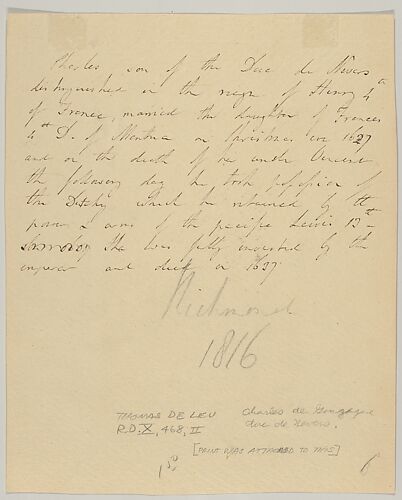 Charles, son of the Duc de Nevers
distinguished in the reign of Henry 4th
of France, married the daughter of Frances
4th D. of Mantua on Christmas eve 1627
and on the death of her uncle Vincent
the following day he took possession of
the Dutchy which he retained by the
power & arms of the pacific Lewis 13th
he was fully invested by the
emperor and died in 1637
Richmond
1816
THOMAS DE LEU
R.D. X, 468, II
Charles de Gonzague
duc de Nevers.
[PRINT WAS ATTACHED TO THIS]
6